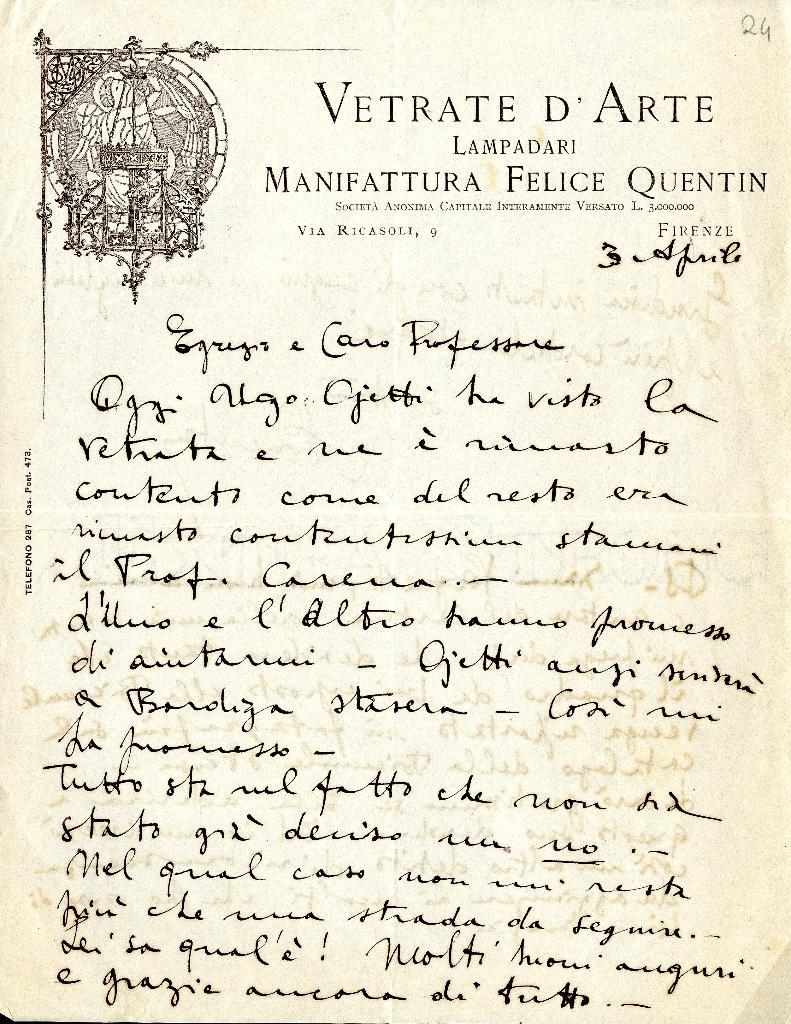 24
VETRATE D'ARTE
LAMPADARI
MANIFATTURA FELICE QUENTIN
SOCIETÀ ANONIMA CAPITALE INTERAMENTE VERSATO L. 3.000.000
VIA RICASOLI, 9 FIRENZE
3 Aprile
Egregio e Caro Professore
Oggi Ugo Ojetti ha visto la
vetrata e ne è rimasto
contento come del resto era
rimasto contentissimo stamani
il Prof. Carena. —
L'Uno e l'Altro hanno promesso
di aiutarmi — Ojetti anzi scriverà
a Bardiga stasera — Così mi
ha promesso —
Tutto sta nel fatto che non sia
stato già deciso un no. —
Nel qual caso non mi resta
più che una strada da seguire. —
Lei sa qual'è! Molti buoni auguri
e grazie ancora di tutto. —
TELEFONO 287 Cas. Post. 473.